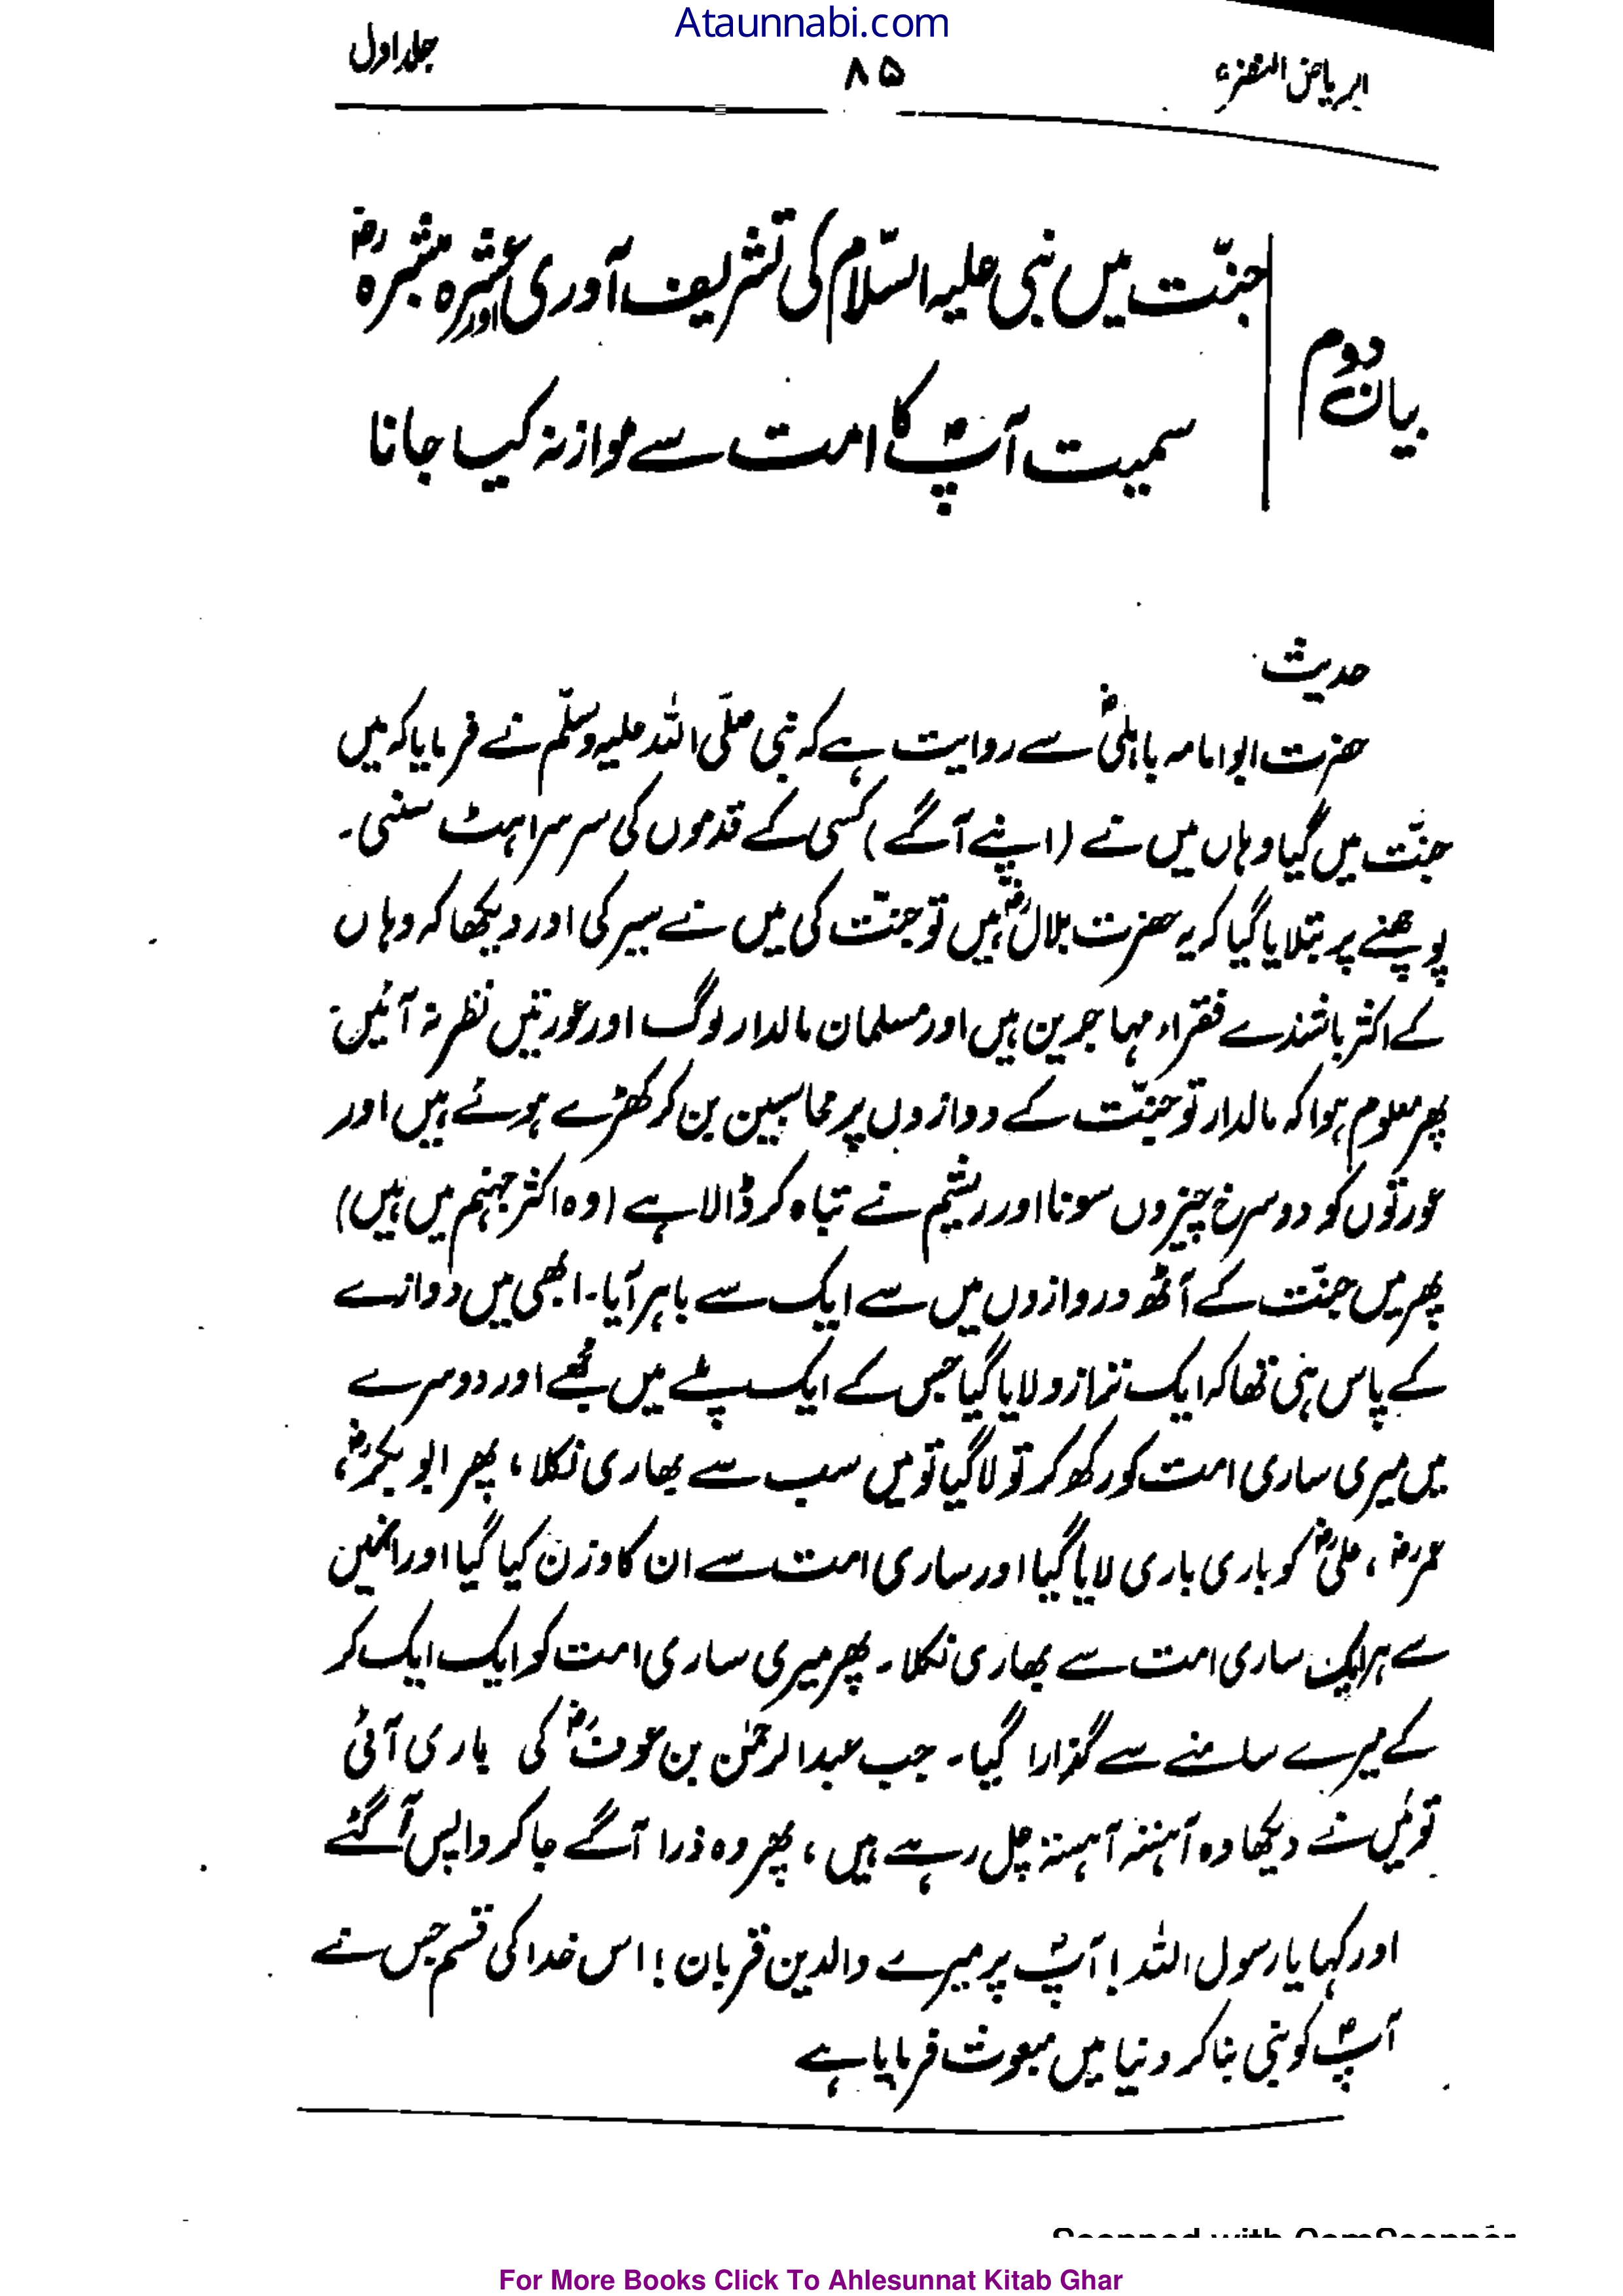 Ataunnabi.com
الریاض النضرہ ۸۵ جلد اول
بیان دوم
جنّت میں نبی علیہ السّلام کی تشریف آوری اور عشرہ مبشرہؓ
سمیت آپؐ کا امت سے موازنہ کیا جانا
حدیث
حضرت ابوامامہ باہلیؓ سے روایت ہے کہ نبی صلّی اللہ علیہ وسلّم نے فرمایا کہ میں
جنّت میں گیا وہاں میں نے (اپنے آگے) کسی کے قدموں کی سرسراہٹ سنی۔
پوچھنے پر بتلایا گیا کہ یہ حضرت بلالؓ ہیں تو جنّت کی میں نے سیر کی اور دیکھا کہ وہاں
کے اکثر باشندے فقراء مہاجرین ہیں اور مسلمان مالدار لوگ اور عورتیں نظر نہ آئیں۔
پھر معلوم ہوا کہ مالدار تو جنّت کے دوازوں پر محاسبین بن کر کھڑے ہوئے ہیں اور
عورتوں کو دوسرخ چیزوں سونا اور ریشم نے تباہ کر ڈالا ہے (وہ اکثر جہنم میں ہیں)
پھر میں جنّت کے آٹھ دروازوں میں سے ایک سے باہر آیا۔ ابھی میں دوازے
کے پاس ہی تھا کہ ایک ترازو لایا گیا جس کے ایک پلے میں مجھے اور دوسرے
میں میری ساری امت کو رکھ کر تولا گیا تو میں سب سے بھاری نکلا، پھر ابوبکرؓ،
عمرؓ، علیؓ کو باری باری لایا گیا اور ساری امت سے ان کا وزن کیا گیا اور انھیں
سے ہر ایک ساری امت سے بھاری نکلا۔ پھر میری ساری امت کو ایک ایک کر
کے میرے سامنے سے گزارا گیا۔ جب عبدالرحمٰن بن عوفؓ کی باری آئی
تو میں نے دیکھا وہ آہستہ آہستہ چل رہے ہیں، پھر وہ ذرا آگے جا کر واپس آگئے
اور کہا یارسول اللہ! آپؐ پر میرے والدین قربان! اس خدا کی قسم جس نے
آپؐ کو نبی بنا کر دنیا میں مبعوث فرمایا ہے
Scanned with CamScanner
For More Books Click To Ahlesunnat Kitab Ghar